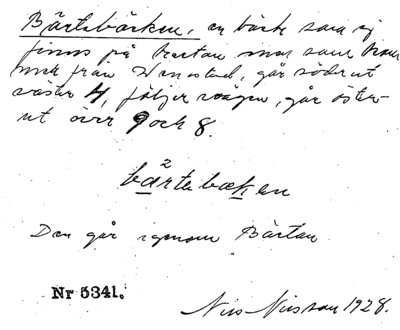 Bärtabäcken, en bäck som ej
finns på kartan men som kom
mer från Simested, går söderut
väster 4, följer vägen, går öster-
ut över 9 och 8.
2
bärtebæken
Den går igenom Bärtan
Nr 5341.
Nils Nilsson 1928.